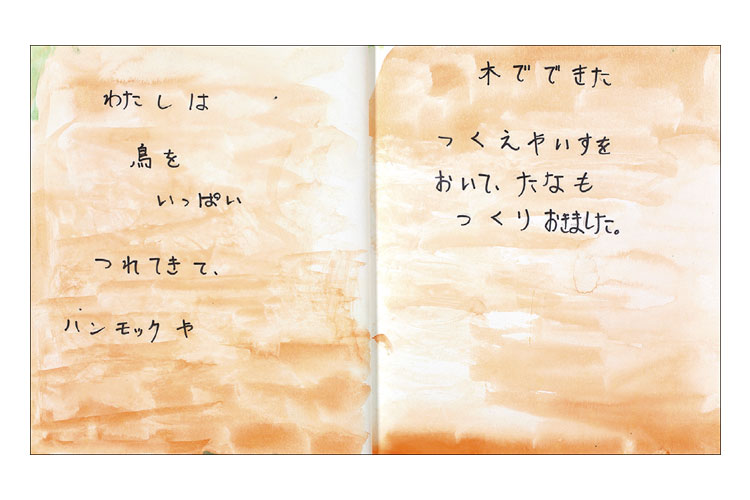 わたしは
鳥を
いっぱい
つれてきて、
ハンモックや
木でできた
つくえやいすを
おいて、たなも
つくりおきました。